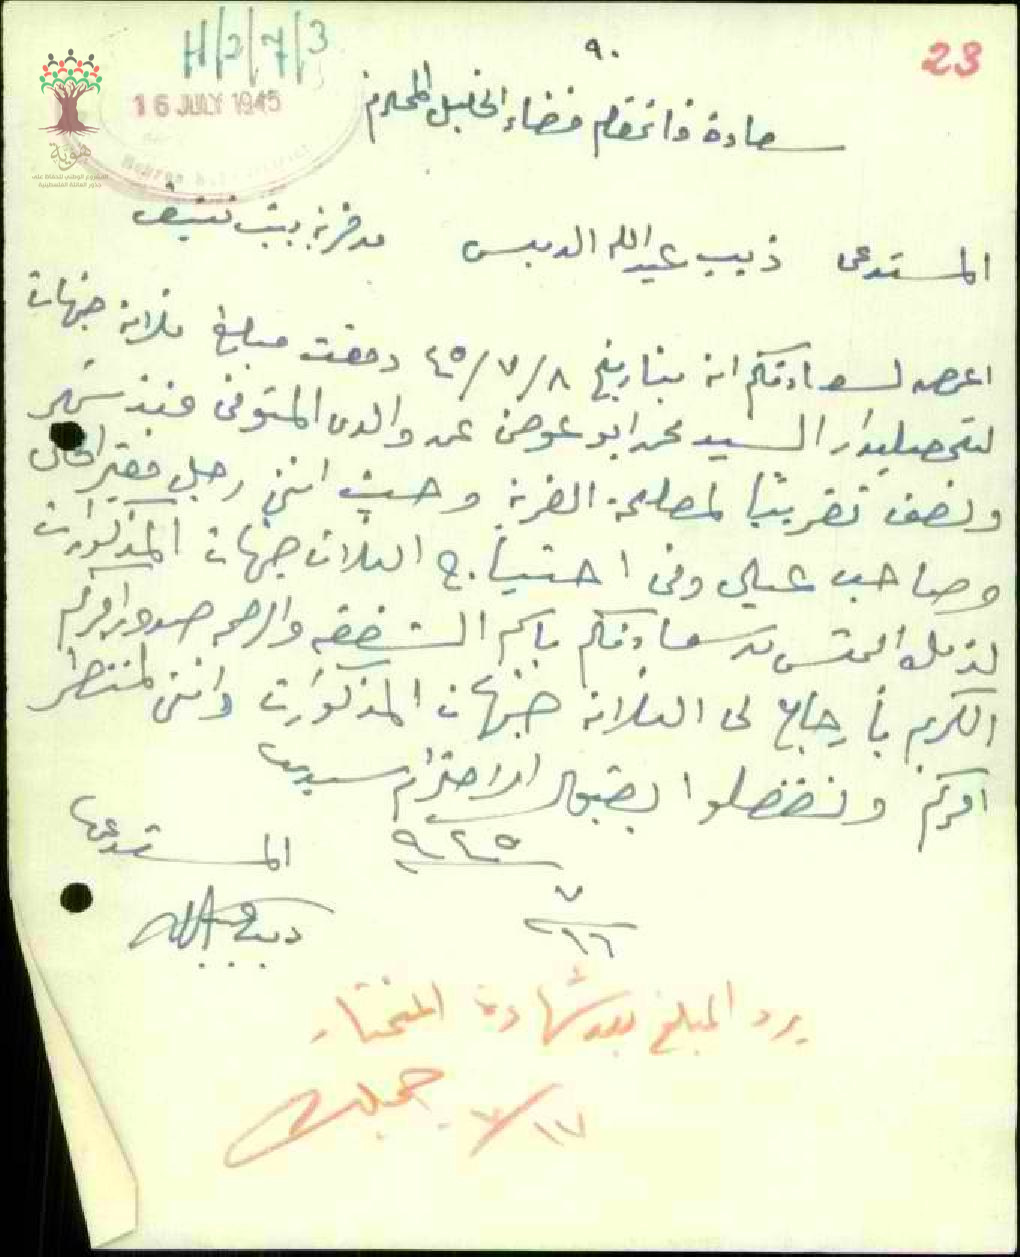 H/2/7/3
٩٠
23
16 JULY 1945
Hebron
هوية
المشروع الوطني للحفاظ على
جذور العائلة الفلسطينية
سعادة قائمقام قضاء الخليل المحترم
المستدعي ذيب عبد الله الدبس من قرية بيت نتيف
اعرض لسعادتكم انه بتاريخ ٤٥/٧/٨ دفعت مبلغ ثلاثة جنيهات
لتحصيلدار السيد محمد ابو عوض عن والدي المتوفي منذ شهر
ونصف تقريبًا لمصلحة القرية وحيث انني رجل فقير الحال
وصاحب عيال وفي احتياج الثلاث جنيهات المذكورات
لذلك التمس من سعادتكم باسم الشفقه والرحمه صدور امركم
الكريم بأرجاع لي الثلاثة جنيهات المذكورات وانني لمنتظر
امركم وتفضلوا بقبول الاحترام سيدي
٩٤٥
المستدعي
٧
١٦
ذيب عبد الله
يرد المبلغ بعد شهادة المختار
٧/١٧